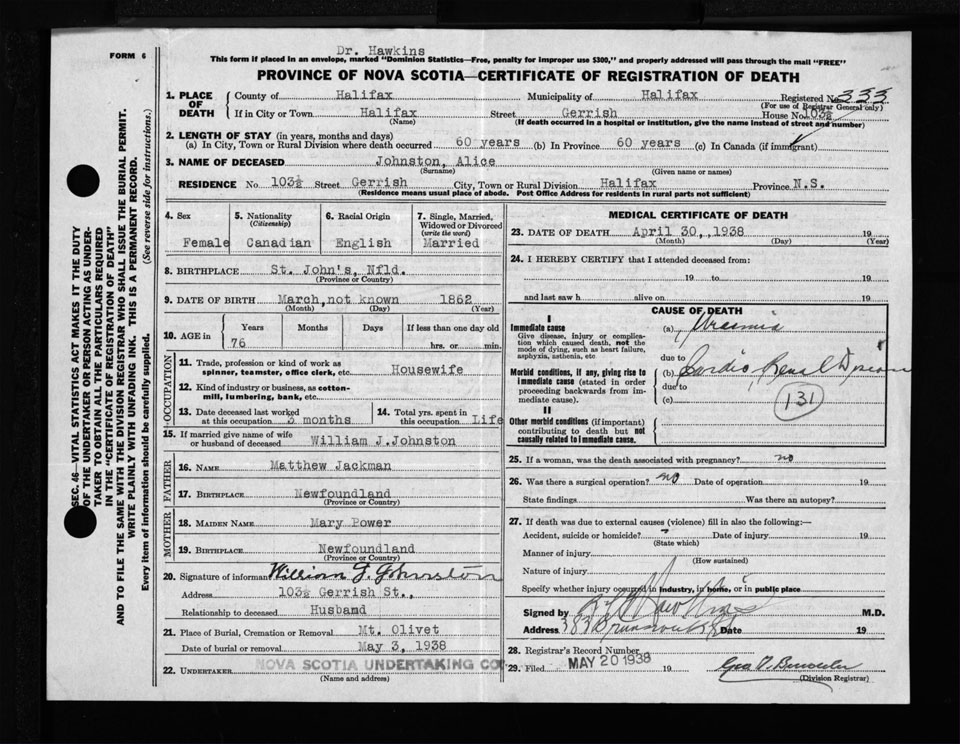 FORM 6
Dr. Hawkins
This form if placed in an envelope, marked "Dominion Statistics—Free, penalty for improper use $300," and properly addressed will pass through the mail "FREE"
PROVINCE OF NOVA SCOTIA—CERTIFICATE OF REGISTRATION OF DEATH
1. PLACE OF DEATH
County of Halifax Municipality of Halifax Registered No. 333
(For use of Registrar General only)
If in City or Town Halifax Street Gerrish House No. 103½
(Name) (If death occurred in a hospital or institution, give the name instead of street and number)
2. LENGTH OF STAY (in years, months and days)
(a) In City, Town or Rural Division where death occurred 60 years (b) In Province 60 years (c) In Canada (if immigrant)
3. NAME OF DECEASED Johnston, Alice
(Surname) (Given name or names)
RESIDENCE No 103½ Street Gerrish City, Town or Rural Division Halifax Province N.S.
(Residence means usual place of abode. Post Office Address for residents in rural parts not sufficient)
4. Sex
Female
5. Nationality
(Citizenship)
Canadian
6. Racial Origin
English
7. Single, Married, Widowed or Divorced
(write the word)
Married
8. BIRTHPLACE St. John's, Nfld.
(Province or Country)
9. DATE OF BIRTH March, not known 1862
(Month) (Day) (Year)
10. AGE in
Years Months Days If less than one day old
76 hrs. or min.
OCCUPATION
11. Trade, profession or kind of work as
spinner, teamster, office clerk, etc. Housewife
12. Kind of industry or business, as cotton-
mill, lumbering, bank, etc.
13. Date deceased last worked
at this occupation 3 months
14. Total yrs. spent in
this occupation Life
15. If married give name of wife
or husband of deceased William J. Johnston
FATHER
16. Name Matthew Jackman
17. Birthplace Newfoundland
(Province or Country)
MOTHER
18. Maiden Name Mary Power
19. Birthplace Newfoundland
(Province or Country)
20. Signature of informant William J. Johnston
Address 103½ Gerrish St.,
Relationship to deceased Husband
21. Place of Burial, Cremation or Removal Mt. Olivet
Date of burial or removal May 3, 1938
22. Undertaker NOVA SCOTIA UNDERTAKING CO.
(Name and address)
MEDICAL CERTIFICATE OF DEATH
23. DATE OF DEATH April 30, 1938 19
(Month) (Day) (Year)
24. I HEREBY CERTIFY that I attended deceased from:
19 to 19
and last saw h alive on 19
CAUSE OF DEATH
I
Immediate cause
Give disease, injury or complica-
tion which caused death, not the
mode of dying, such as heart failure,
asphyxia, asthenia, etc
(a) Uraemia
due to
Morbid conditions, if any, giving rise to
immediate cause (stated in order
proceeding backwards from im-
mediate cause).
(b) Cardio Renal Disease
due to
(c)
131
II
Other morbid conditions (if important)
contributing to death but not
causally related to immediate cause.
25. If a woman, was the death associated with pregnancy? no
26. Was there a surgical operation? no Date of operation 19
State findings Was there an autopsy?
27. If death was due to external causes (violence) fill in also the following:—
Accident, suicide or homicide? Date of injury 19
(State which)
Manner of injury
(How sustained)
Nature of injury
Specify whether injury occurred in industry, in home, or in public place
Signed by Hawkins M.D.
Address 383 Brunswick St Date 19
28. Registrar's Record Number
29. Filed MAY 20 1938 19
(Division Registrar)
SEC. 46—VITAL STATISTICS ACT MAKES IT THE DUTY
OF THE UNDERTAKER OR PERSON ACTING AS UNDER-
TAKER TO OBTAIN ALL THE PARTICULARS REQUIRED
IN THE "CERTIFICATE OF REGISTRATION OF DEATH"
AND TO FILE THE SAME WITH THE DIVISION REGISTRAR WHO SHALL ISSUE THE BURIAL PERMIT.
WRITE PLAINLY WITH UNFADING INK. THIS IS A PERMANENT RECORD.
Every item of information should be carefully supplied. (See reverse side for instructions.)